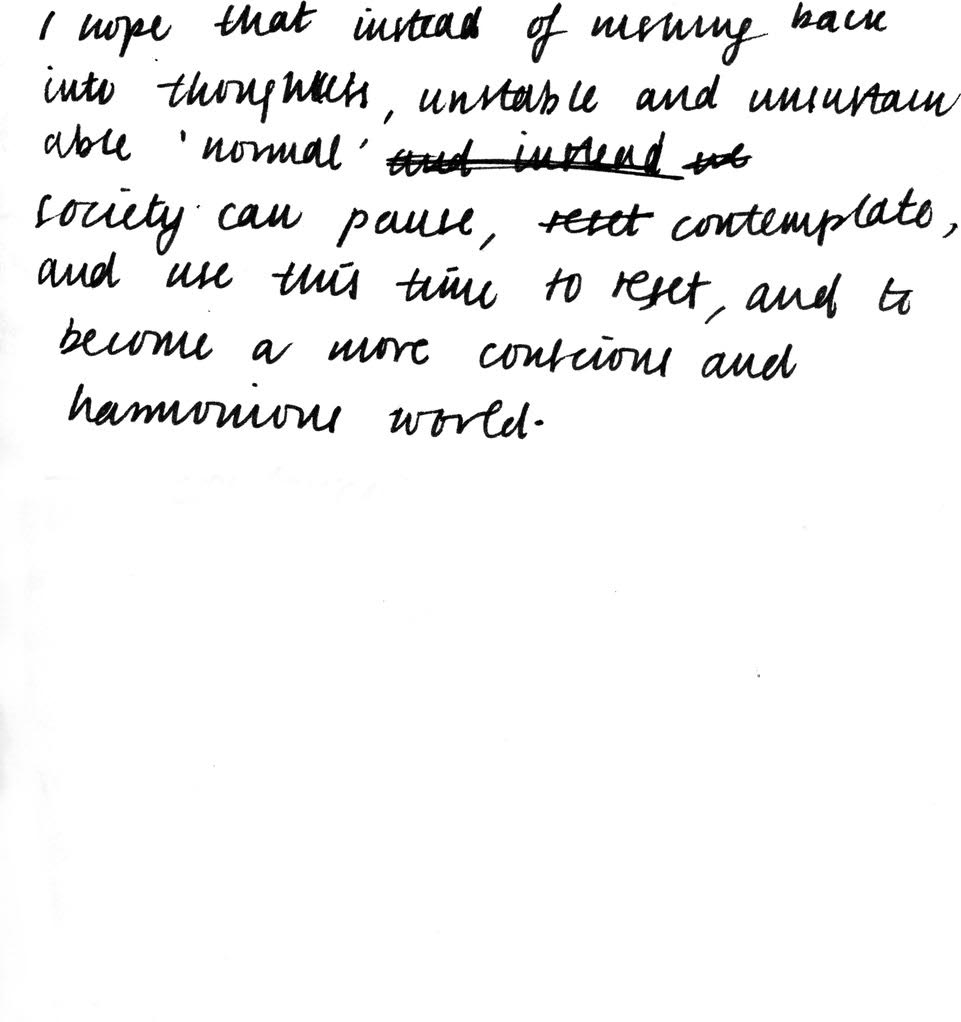 I hope that instead of rushing back
into thoughtless, unstable and unsustain
able 'normal' and instead we
society can pause, reset contemplate,
and use this time to reset, and to
become a more conscious and
harmonious world.